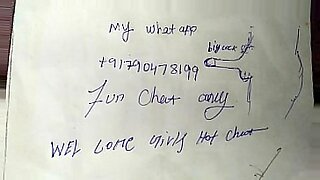 My whatapp
big cock
+91790478199
Fun Chat only
WEL COME girls Hot Chat